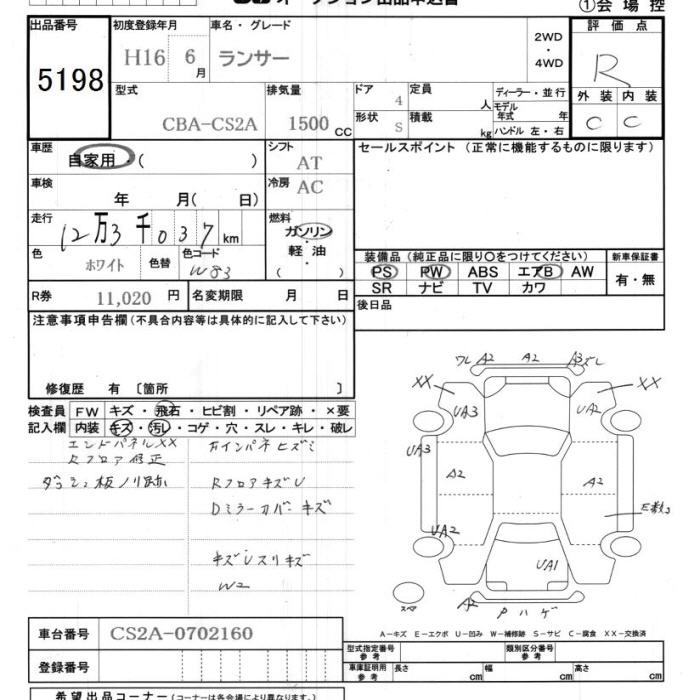 ①会場控
出品番号 初度登録年月 車名・グレード 評価点
5198 H16 6月 ランサー 2WD・4WD R
型式 排気量 ドア 定員 ディーラー・並行 外装 内装
CBA-CS2A 1500CC 4 人 モデル年式 年 C C
形状 積載 ハンドル 左・右
S kg
車歴 自家用・( ) シフト AT セールスポイント(正常に機能するものに限ります)
車検 年 月( 日) 冷房 AC
走行 12万3千037km 燃料 ガソリン・軽油 ( )
色 ホワイト 色替 色コード W83
装備品(純正品に限り○をつけてください) 新車保証書
PS PW ABS エアB AW 有・無
SR ナビ TV カワ
R券 11,020円 名変期限 月 日 後日品
注意事項申告欄(不具合内容等は具体的に記入して下さい)
修復歴 有 〔箇所 〕
検査員記入欄 FW キズ・飛石・ヒビ割・リペア跡・×要
内装 キズ・汚レ・コゲ・穴・スレ・キレ・破レ
エンドパネルXX
Rフロア修正
ダッシュ板ノリ跡
RフロアキズU
Dミラーカバーキズ
W2
ワレ A2 A2 A3 ズレ
XX XX
UA3 UA2
UA3
A2 A2
UA2
UA1
スペア
A2 Pハゲ
A-キズ E-エクボ U-凹み W-補修跡 S-サビ C-腐食 XX-交換済
車台番号 CS2A-0702160
型式指定番号 参考 類別区分番号 参考
登録番号 車庫証明用 参考 長さ cm 幅 cm 高さ cm
希望出品コーナー(コーナーは各会場により異なります。)